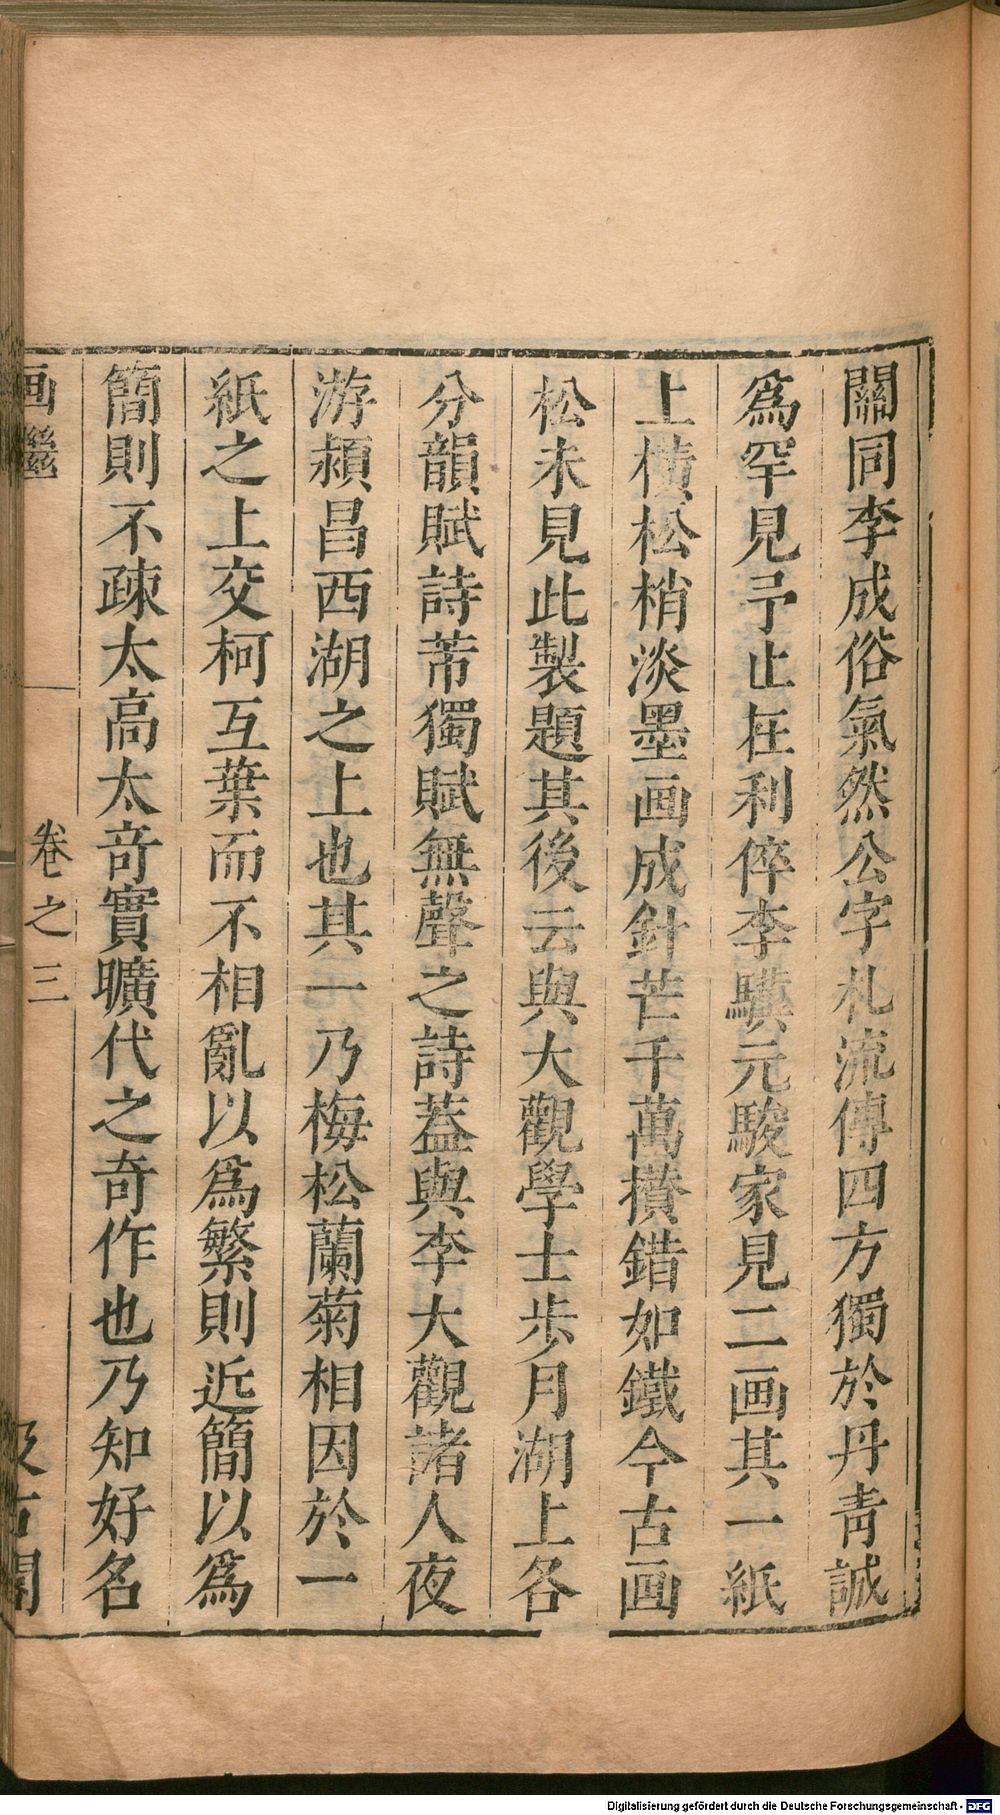 關同李成俗氣然公字札流傳四方獨於丹青誠
爲罕見予止在利倅李驥元駿家見二画其一紙
上横松梢淡墨画成針芒千萬攅錯如鐵今古画
松未見此製題其後云與大觀學士步月湖上各
分韻賦詩芾獨賦無聲之詩葢與李大觀諸人夜
游潁昌西湖之上也其一乃梅松蘭菊相因於一
紙之上交柯互葉而不相亂以爲繁則近簡以爲
簡則不疎太高太竒實曠代之奇作也乃知好名
画繼 卷之三 汲古閣
Digitalisierung gefördert durch die Deutsche Forschungsgemeinschaft - DFG